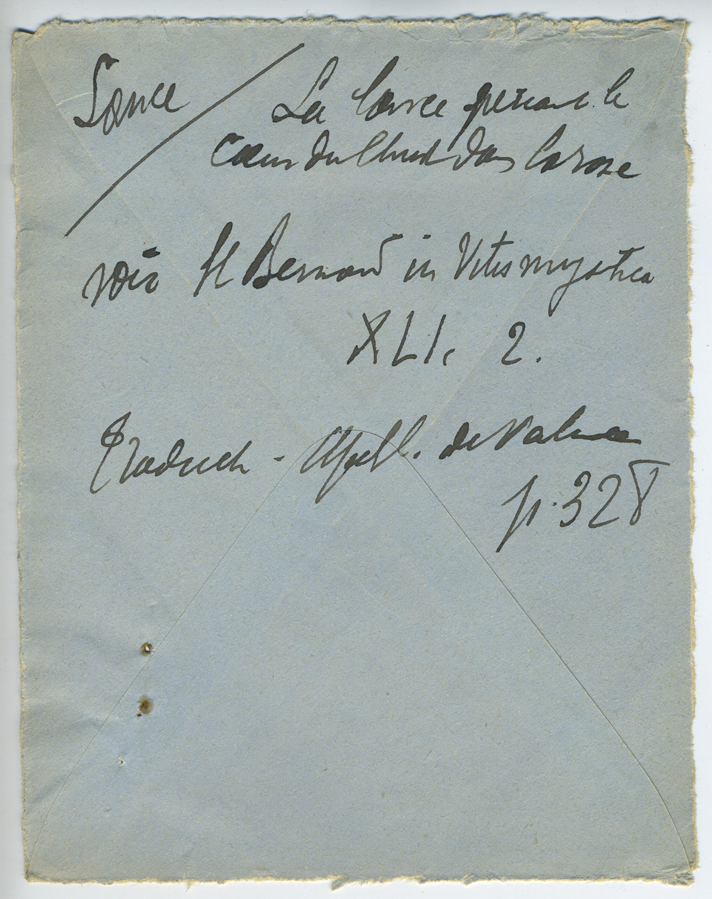 Lance / La lance perçant le
cœur du Christ dans la rose
voir St Bernard in Vitis mystica
XLI. 2.
Traduct - Apoll. de Valence
p. 328